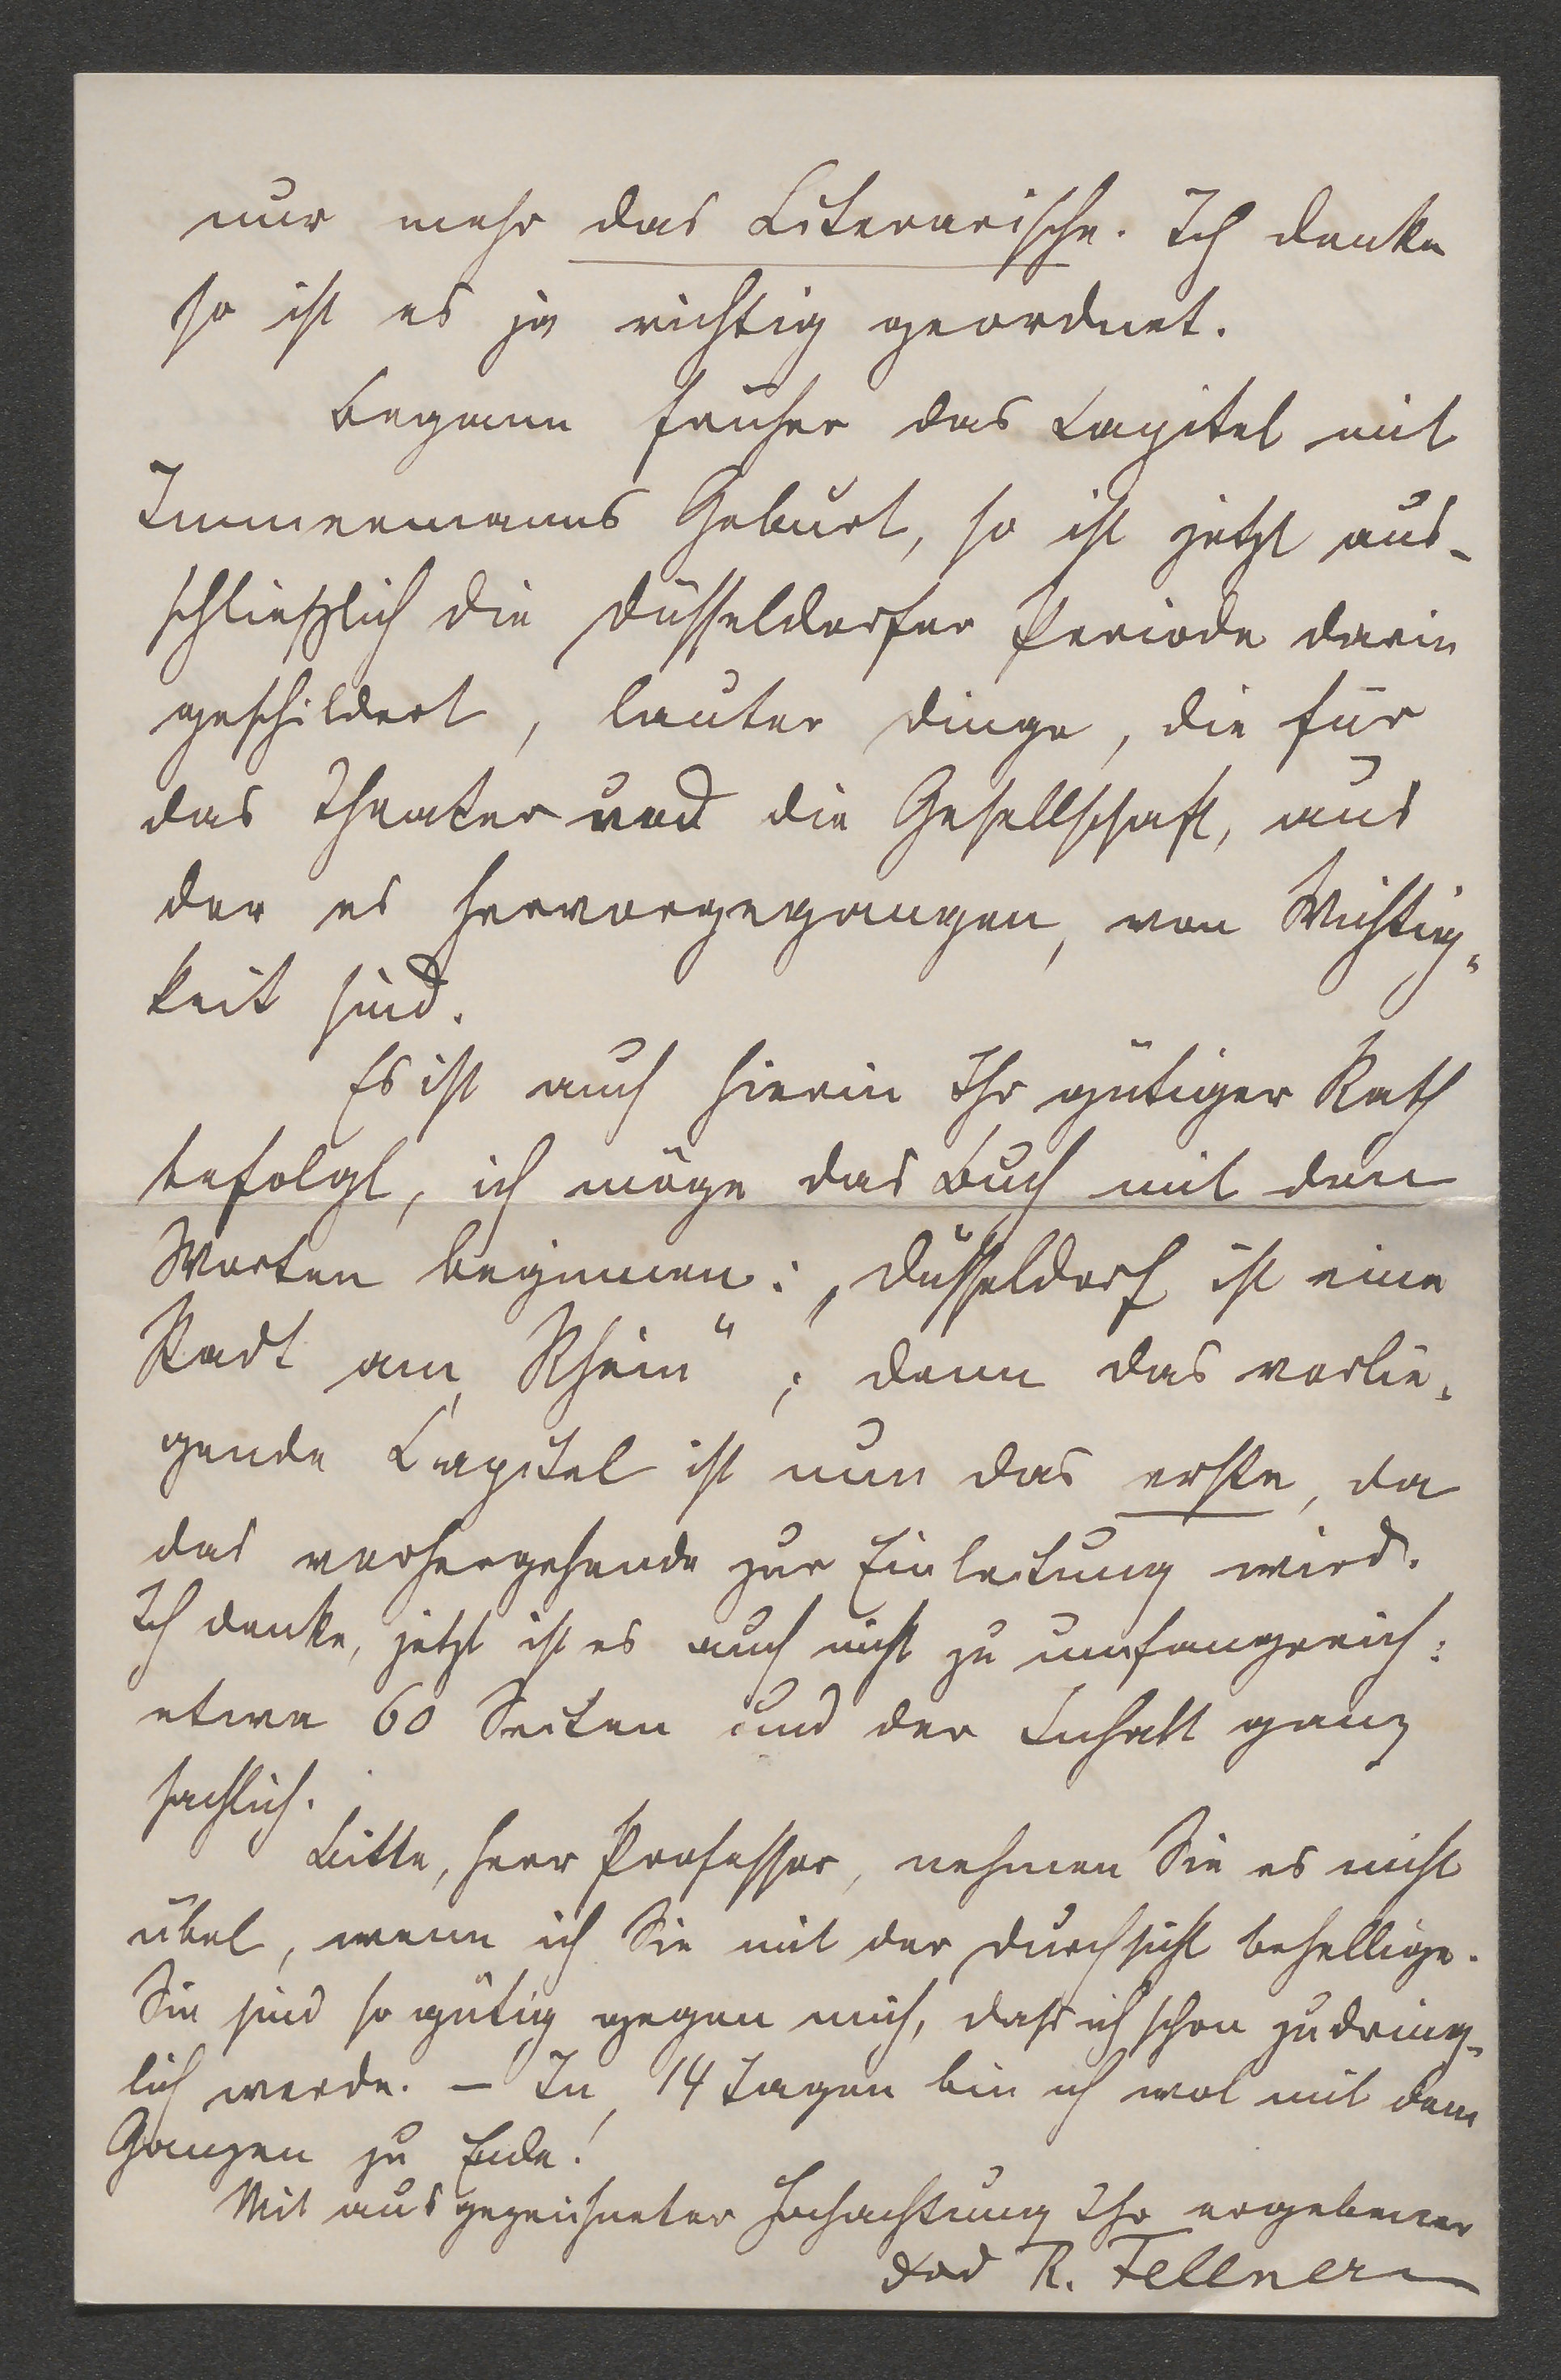 nur mehr das Literarische. Ich denke
so ist es ja richtig geordnet.
Begann früher das Capitel mit
Immermanns Geburt, so ist jetzt aus-
schließlich die Düsseldorfer Periode darin
geschildert, lauter Dinge, die für
das Theater und die Gesellschaft, aus
der es hervorgegangen, von Wichtig-
keit sind.
Es ist auch hierin Ihr gütiger Rath
befolgt, ich möge das Buch mit den
Worten beginnen: „Düsseldorf ist eine
Stadt am Rhein“; denn das vorlie-
gende Capitel ist nun das erste, da
das vorhergehende zur Einleitung wird.
Ich denke, jetzt ist es auch nicht zu umfangreich:
etwa 60 Seiten und der Inhalt ganz
sachlich.
Bitte, Herr Professor, nehmen Sie es nicht
übel, wenn ich Sie mit der Durchsicht behellige.
Sie sind so gütig gegen mich, daß ich schon zudring-
lich werde. – In 14 Tagen bin ich wol mit dem
Ganzen zu Ende!
Mit ausgezeichneter Hochachtung Ihr ergebener
R. Fellner